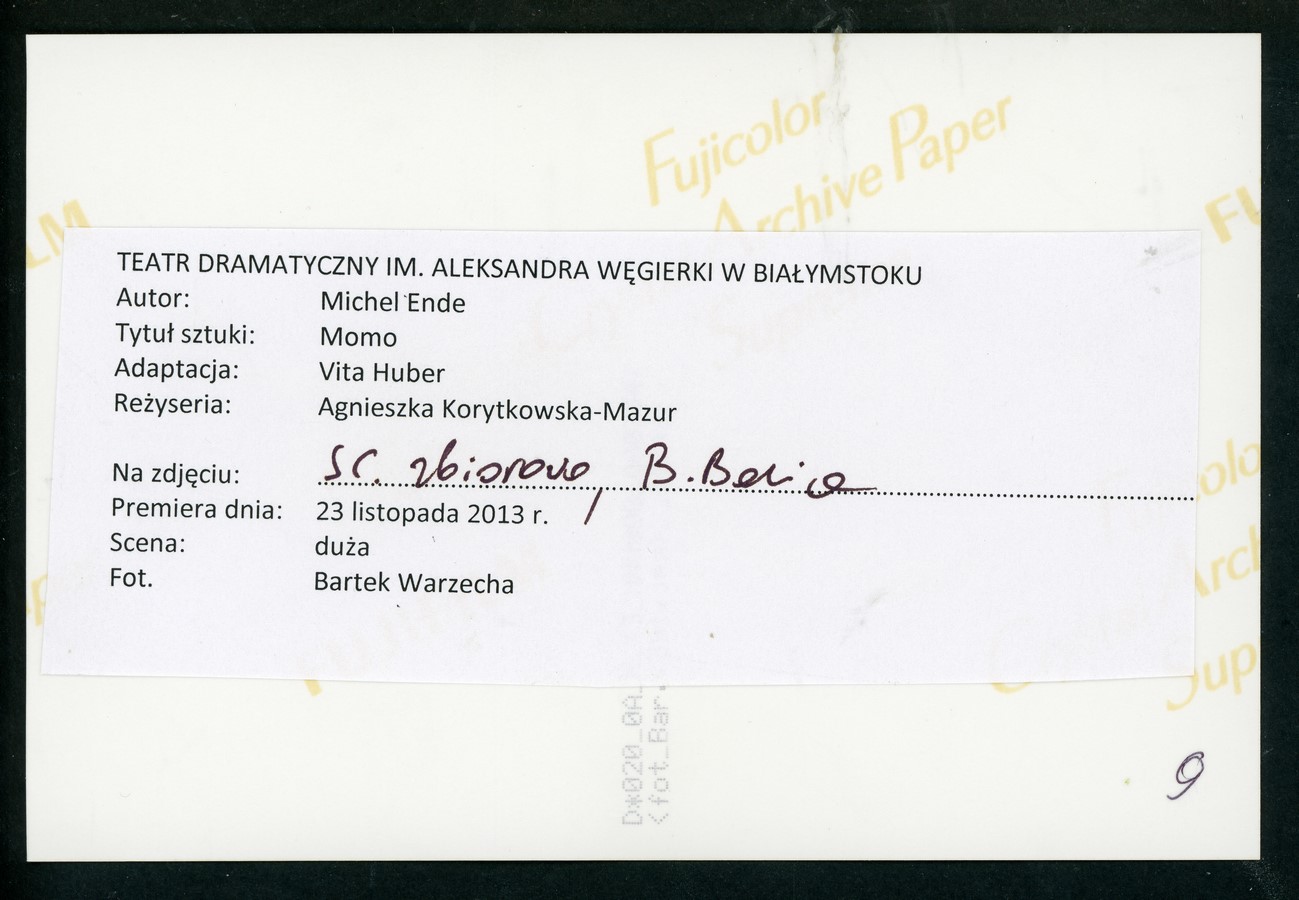 Fujicolor
Archive Paper
LM
FU
TEATR DRAMATYCZNY IM. ALEKSANDRA WĘGIERKI W BIAŁYMSTOKU
Autor: Michel Ende
Tytuł sztuki: Momo
Adaptacja: Vita Huber
Reżyseria: Agnieszka Korytkowska-Mazur
Na zdjęciu: sc. zbiorowa, B.
Premiera dnia: 23 listopada 2013 r.
Scena: duża
Fot. Bartek Warzecha
olo
Arch
Sup
D*020_0A_
<fot_Bar.
9